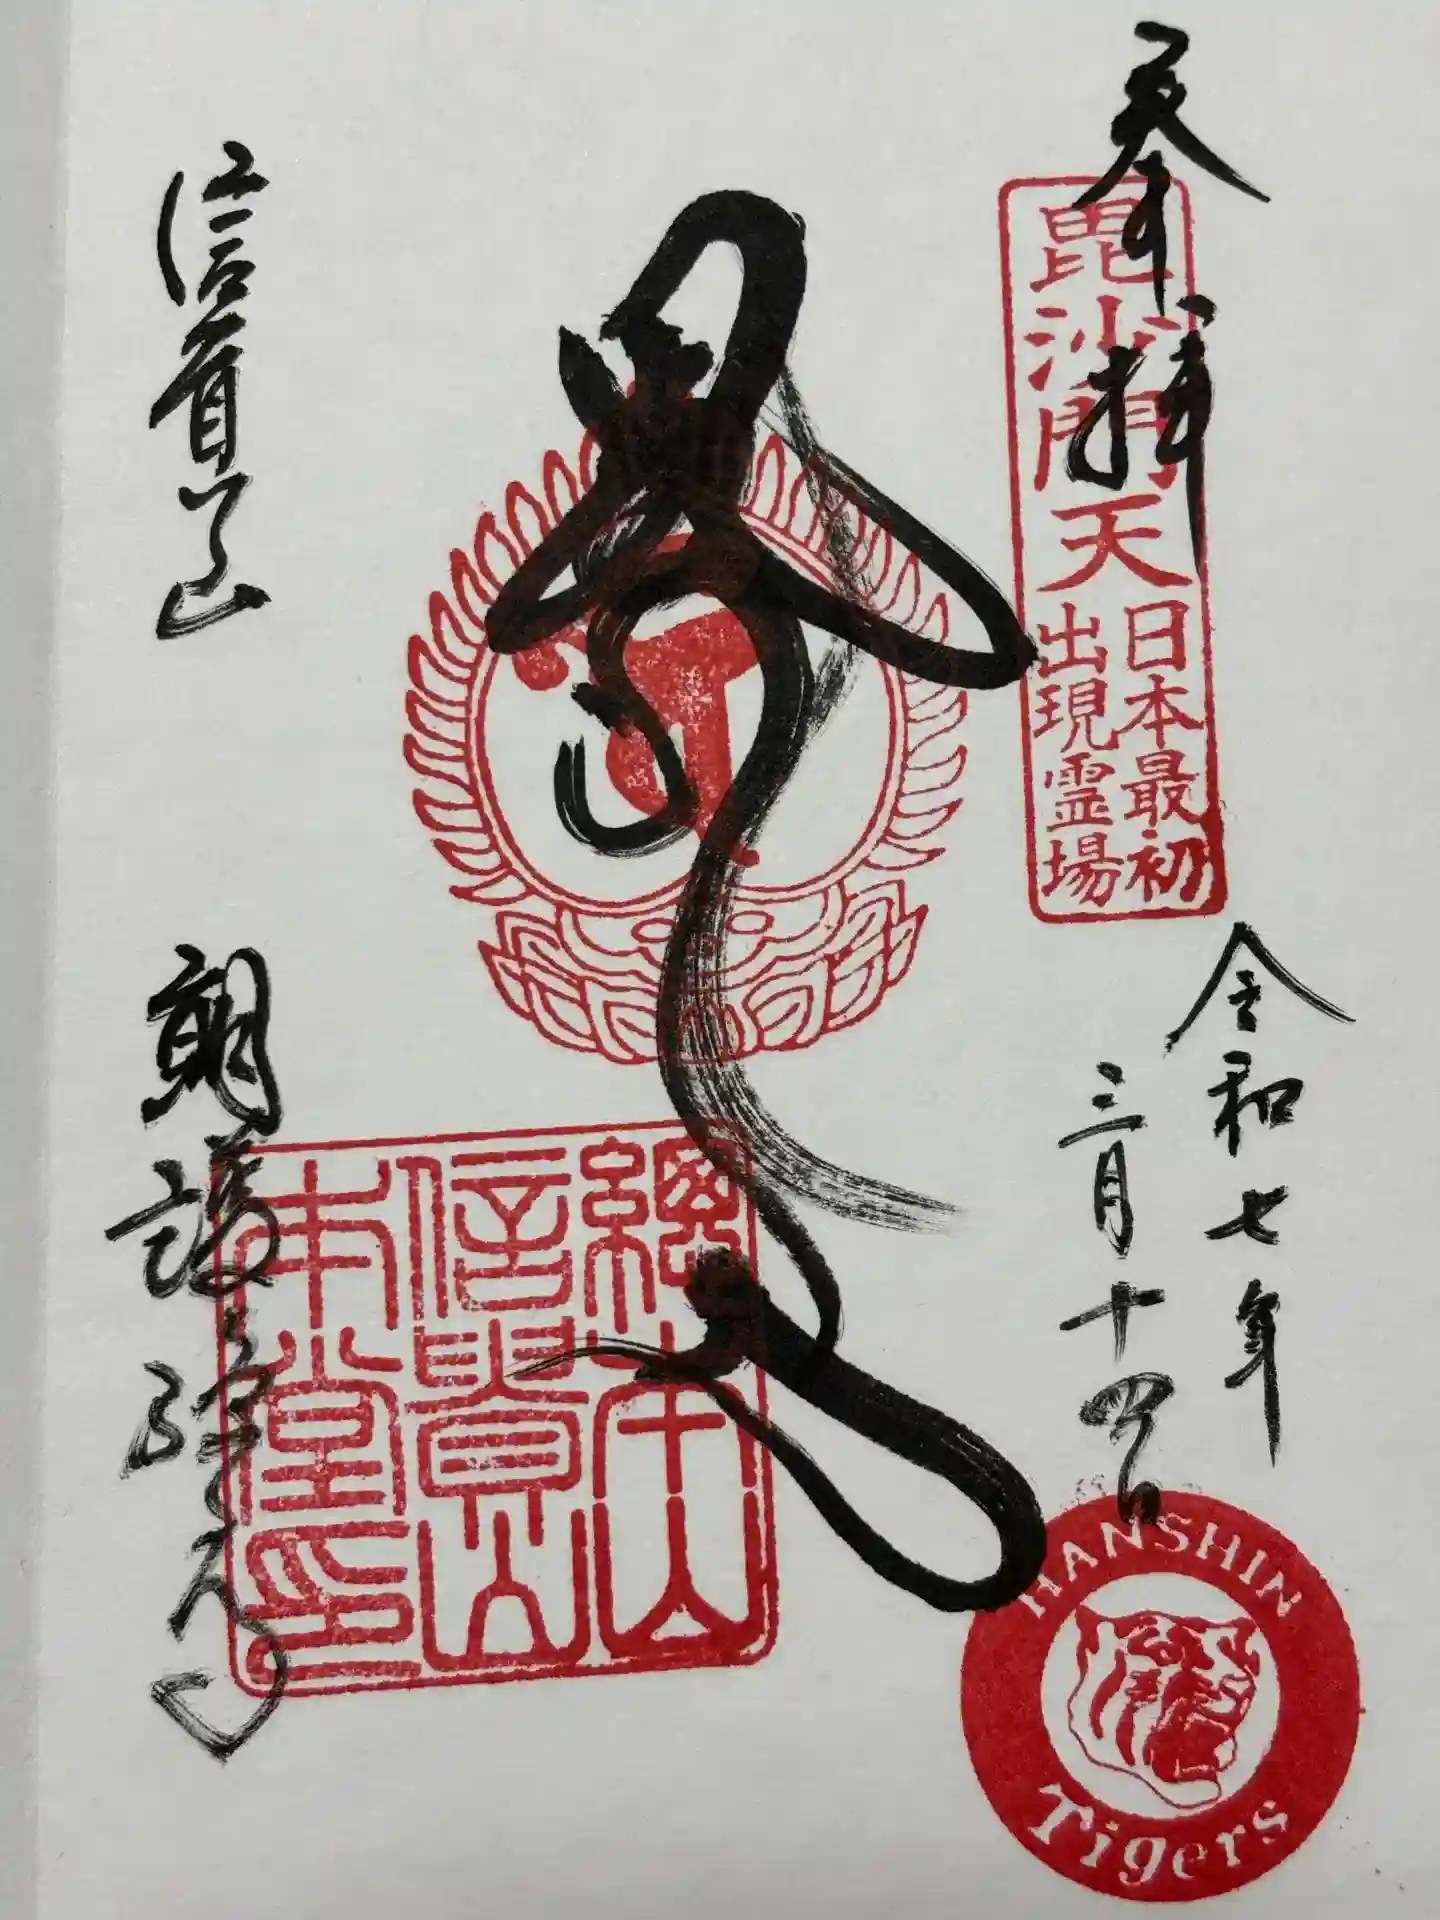 奉拝
毘沙門天
日本最初
出現霊場
令和七年
三月十四日
總本山
信貴山
本堂印
信貴山
朝護孫子寺
HANSHIN
Tigers